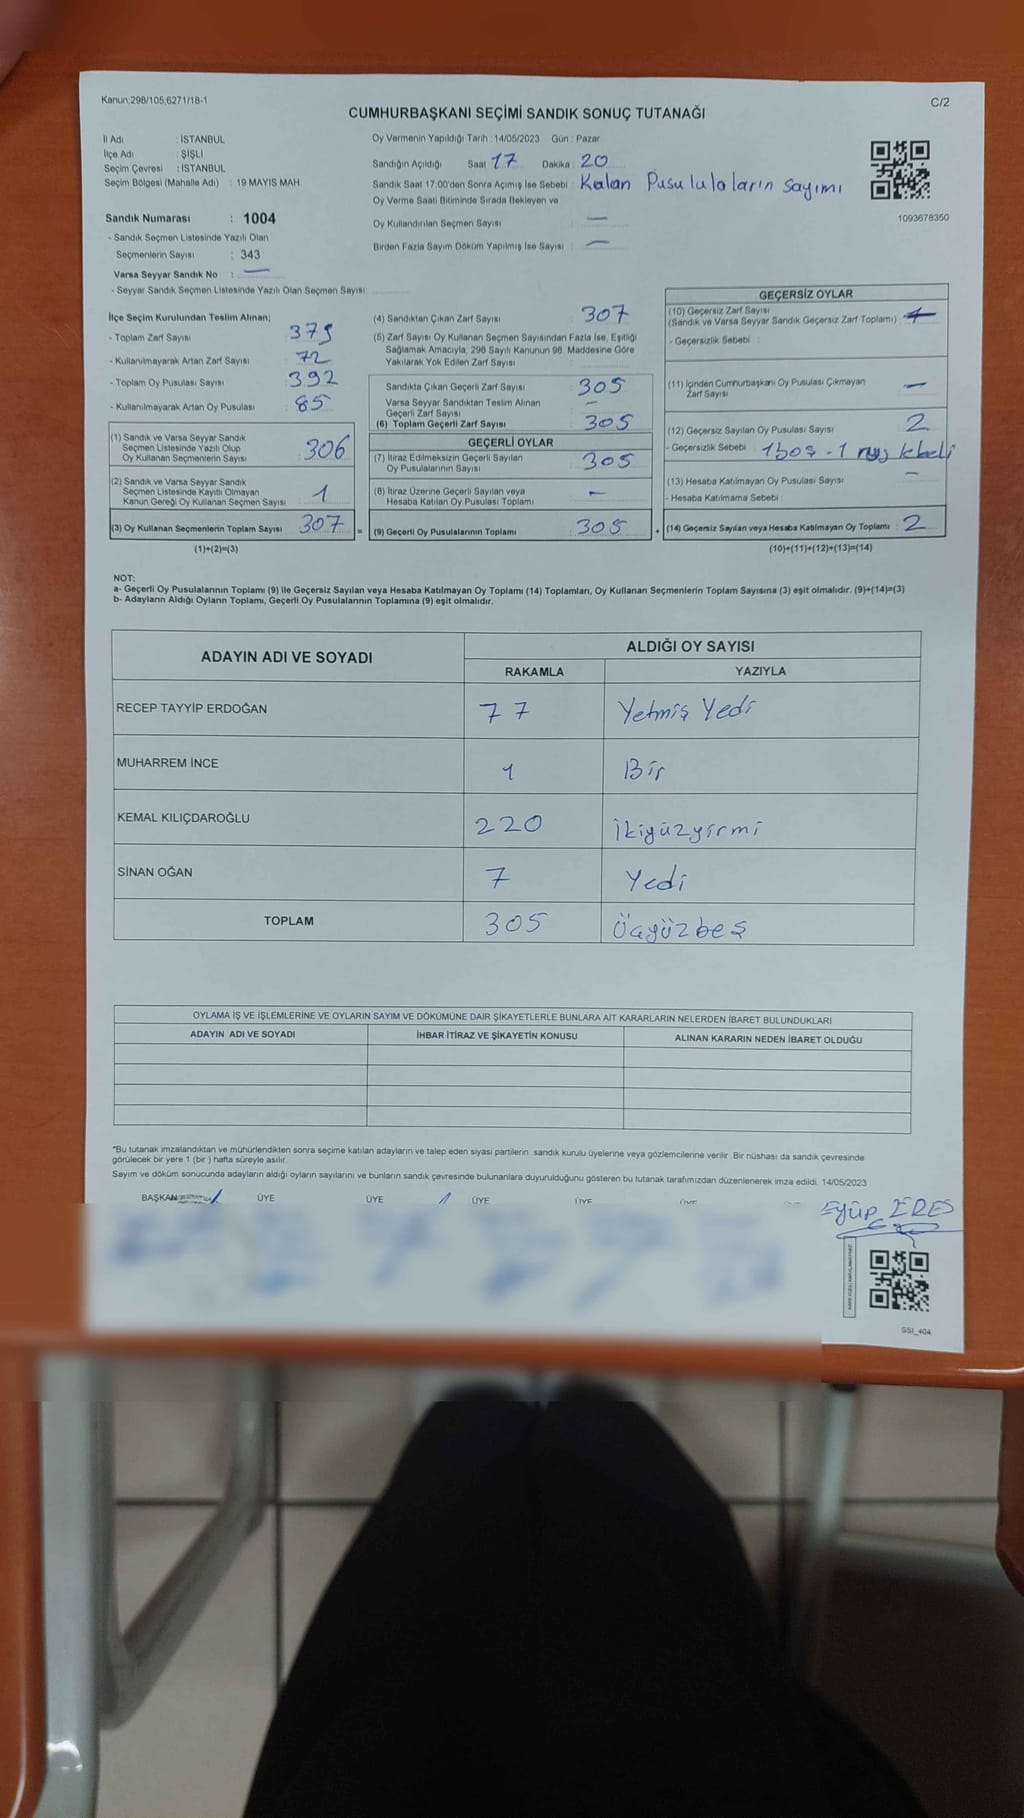 Kanun:298/105;6271/18-1
C/2
CUMHURBAŞKANI SEÇİMİ SANDIK SONUÇ TUTANAĞI
İl Adı : İSTANBUL
İlçe Adı : ŞİŞLİ
Seçim Çevresi : İSTANBUL
Seçim Bölgesi (Mahalle Adı) : 19 MAYIS MAH.
Sandık Numarası : 1004
- Sandık Seçmen Listesinde Yazılı Olan
Seçmenlerin Sayısı : 343
Varsa Seyyar Sandık No : —
- Seyyar Sandık Seçmen Listesinde Yazılı Olan Seçmen Sayısı
Oy Vermenin Yapıldığı Tarih : 14/05/2023 Gün : Pazar
Sandığın Açıldığı Saat 17 Dakika : 20
Sandık Saat 17.00'den Sonra Açımış İse Sebebi : Kalan Pusulalaların sayımı
Oy Verme Saati Bitiminde Sırada Bekleyen ve
Oy Kullandırılan Seçmen Sayısı : —
Birden Fazla Sayım Döküm Yapılmış İse Sayısı : —
1093678350
İlçe Seçim Kurulundan Teslim Alınan;
- Toplam Zarf Sayısı : 379
- Kullanılmayarak Artan Zarf Sayısı : 72
- Toplam Oy Pusulası Sayısı : 392
- Kullanılmayarak Artan Oy Pusulası : 85
(1) Sandık ve Varsa Seyyar Sandık
Seçmen Listesinde Yazılı Olup
Oy Kullanan Seçmenlerin Sayısı : 306
(2) Sandık ve Varsa Seyyar Sandık
Seçmen Listesinde Kayıtlı Olmayan
Kanun Gereği Oy Kullanan Seçmen Sayısı : 1
(3) Oy Kullanan Seçmenlerin Toplam Sayısı : 307
(1)+(2)=(3)
(4) Sandıktan Çıkan Zarf Sayısı : 307
(5) Zarf Sayısı Oy Kullanan Seçmen Sayısından Fazla İse, Eşitliği
Sağlamak Amacıyla, 298 Sayılı Kanunun 98. Maddesine Göre
Yakılarak Yok Edilen Zarf Sayısı :
Sandıkta Çıkan Geçerli Zarf Sayısı : 305
Varsa Seyyar Sandıktan Teslim Alınan
Geçerli Zarf Sayısı : —
(6) Toplam Geçerli Zarf Sayısı : 305
GEÇERLİ OYLAR
(7) İtiraz Edilmeksizin Geçerli Sayılan
Oy Pusulalarının Sayısı : 305
(8) İtiraz Üzerine Geçerli Sayılan veya
Hesaba Katılan Oy Pusulası Toplamı : —
= (9) Geçerli Oy Pusulalarının Toplamı : 305 +
GEÇERSİZ OYLAR
(10) Geçersiz Zarf Sayısı
(Sandık ve Varsa Seyyar Sandık Geçersiz Zarf Toplamı) :
- Geçersizlik Sebebi :
(11) İçinden Cumhurbaşkanı Oy Pusulası Çıkmayan
Zarf Sayısı : —
(12) Geçersiz Sayılan Oy Pusulası Sayısı : 2
- Geçersizlik Sebebi : 1 boş - 1
(13) Hesaba Katılmayan Oy Pusulası Sayısı : —
- Hesaba Katılmama Sebebi :
(14) Geçersiz Sayılan veya Hesaba Katılmayan Oy Toplamı : 2
(10)+(11)+(12)+(13)=(14)
NOT:
a- Geçerli Oy Pusulalarının Toplamı (9) ile Geçersiz Sayılan veya Hesaba Katılmayan Oy Toplamı (14) Toplamları, Oy Kullanan Seçmenlerin Toplam Sayısına (3) eşit olmalıdır. (9)+(14)=(3)
b- Adayların Aldığı Oyların Toplamı, Geçerli Oy Pusulalarının Toplamına (9) eşit olmalıdır.
ADAYIN ADI VE SOYADI
ALDIĞI OY SAYISI
RAKAMLA YAZIYLA
RECEP TAYYİP ERDOĞAN 77 Yetmiş Yedi
MUHARREM İNCE 1 Bir
KEMAL KILIÇDAROĞLU 220 İkiyüzyirmi
SİNAN OĞAN 7 Yedi
TOPLAM 305 Üçyüzbeş
OYLAMA İŞ VE İŞLEMLERİNE VE OYLARIN SAYIM VE DÖKÜMÜNE DAİR ŞİKAYETLERLE BUNLARA AİT KARARLARIN NELERDEN İBARET BULUNDUKLARI
ADAYIN ADI VE SOYADI İHBAR İTİRAZ VE ŞİKAYETİN KONUSU ALINAN KARARIN NEDEN İBARET OLDUĞU
*Bu tutanak imzalandıktan ve mühürlendikten sonra seçime katılan adayların ve talep eden siyasi partilerin sandık kurulu üyelerine veya gözlemcilerine verilir. Bir nüshası da sandık çevresinde
görülecek bir yere 1 (bir) hafta süreyle asılır.
Sayım ve döküm sonucunda adayların aldığı oyların sayılarını ve bunların sandık çevresinde bulunanlara duyurulduğunu gösteren bu tutanak tarafımızdan düzenlenerek imza edildi. 14/05/2023
BAŞKAN ÜYE ÜYE ÜYE ÜYE ÜYE
Eyüp ERES
SSI_404